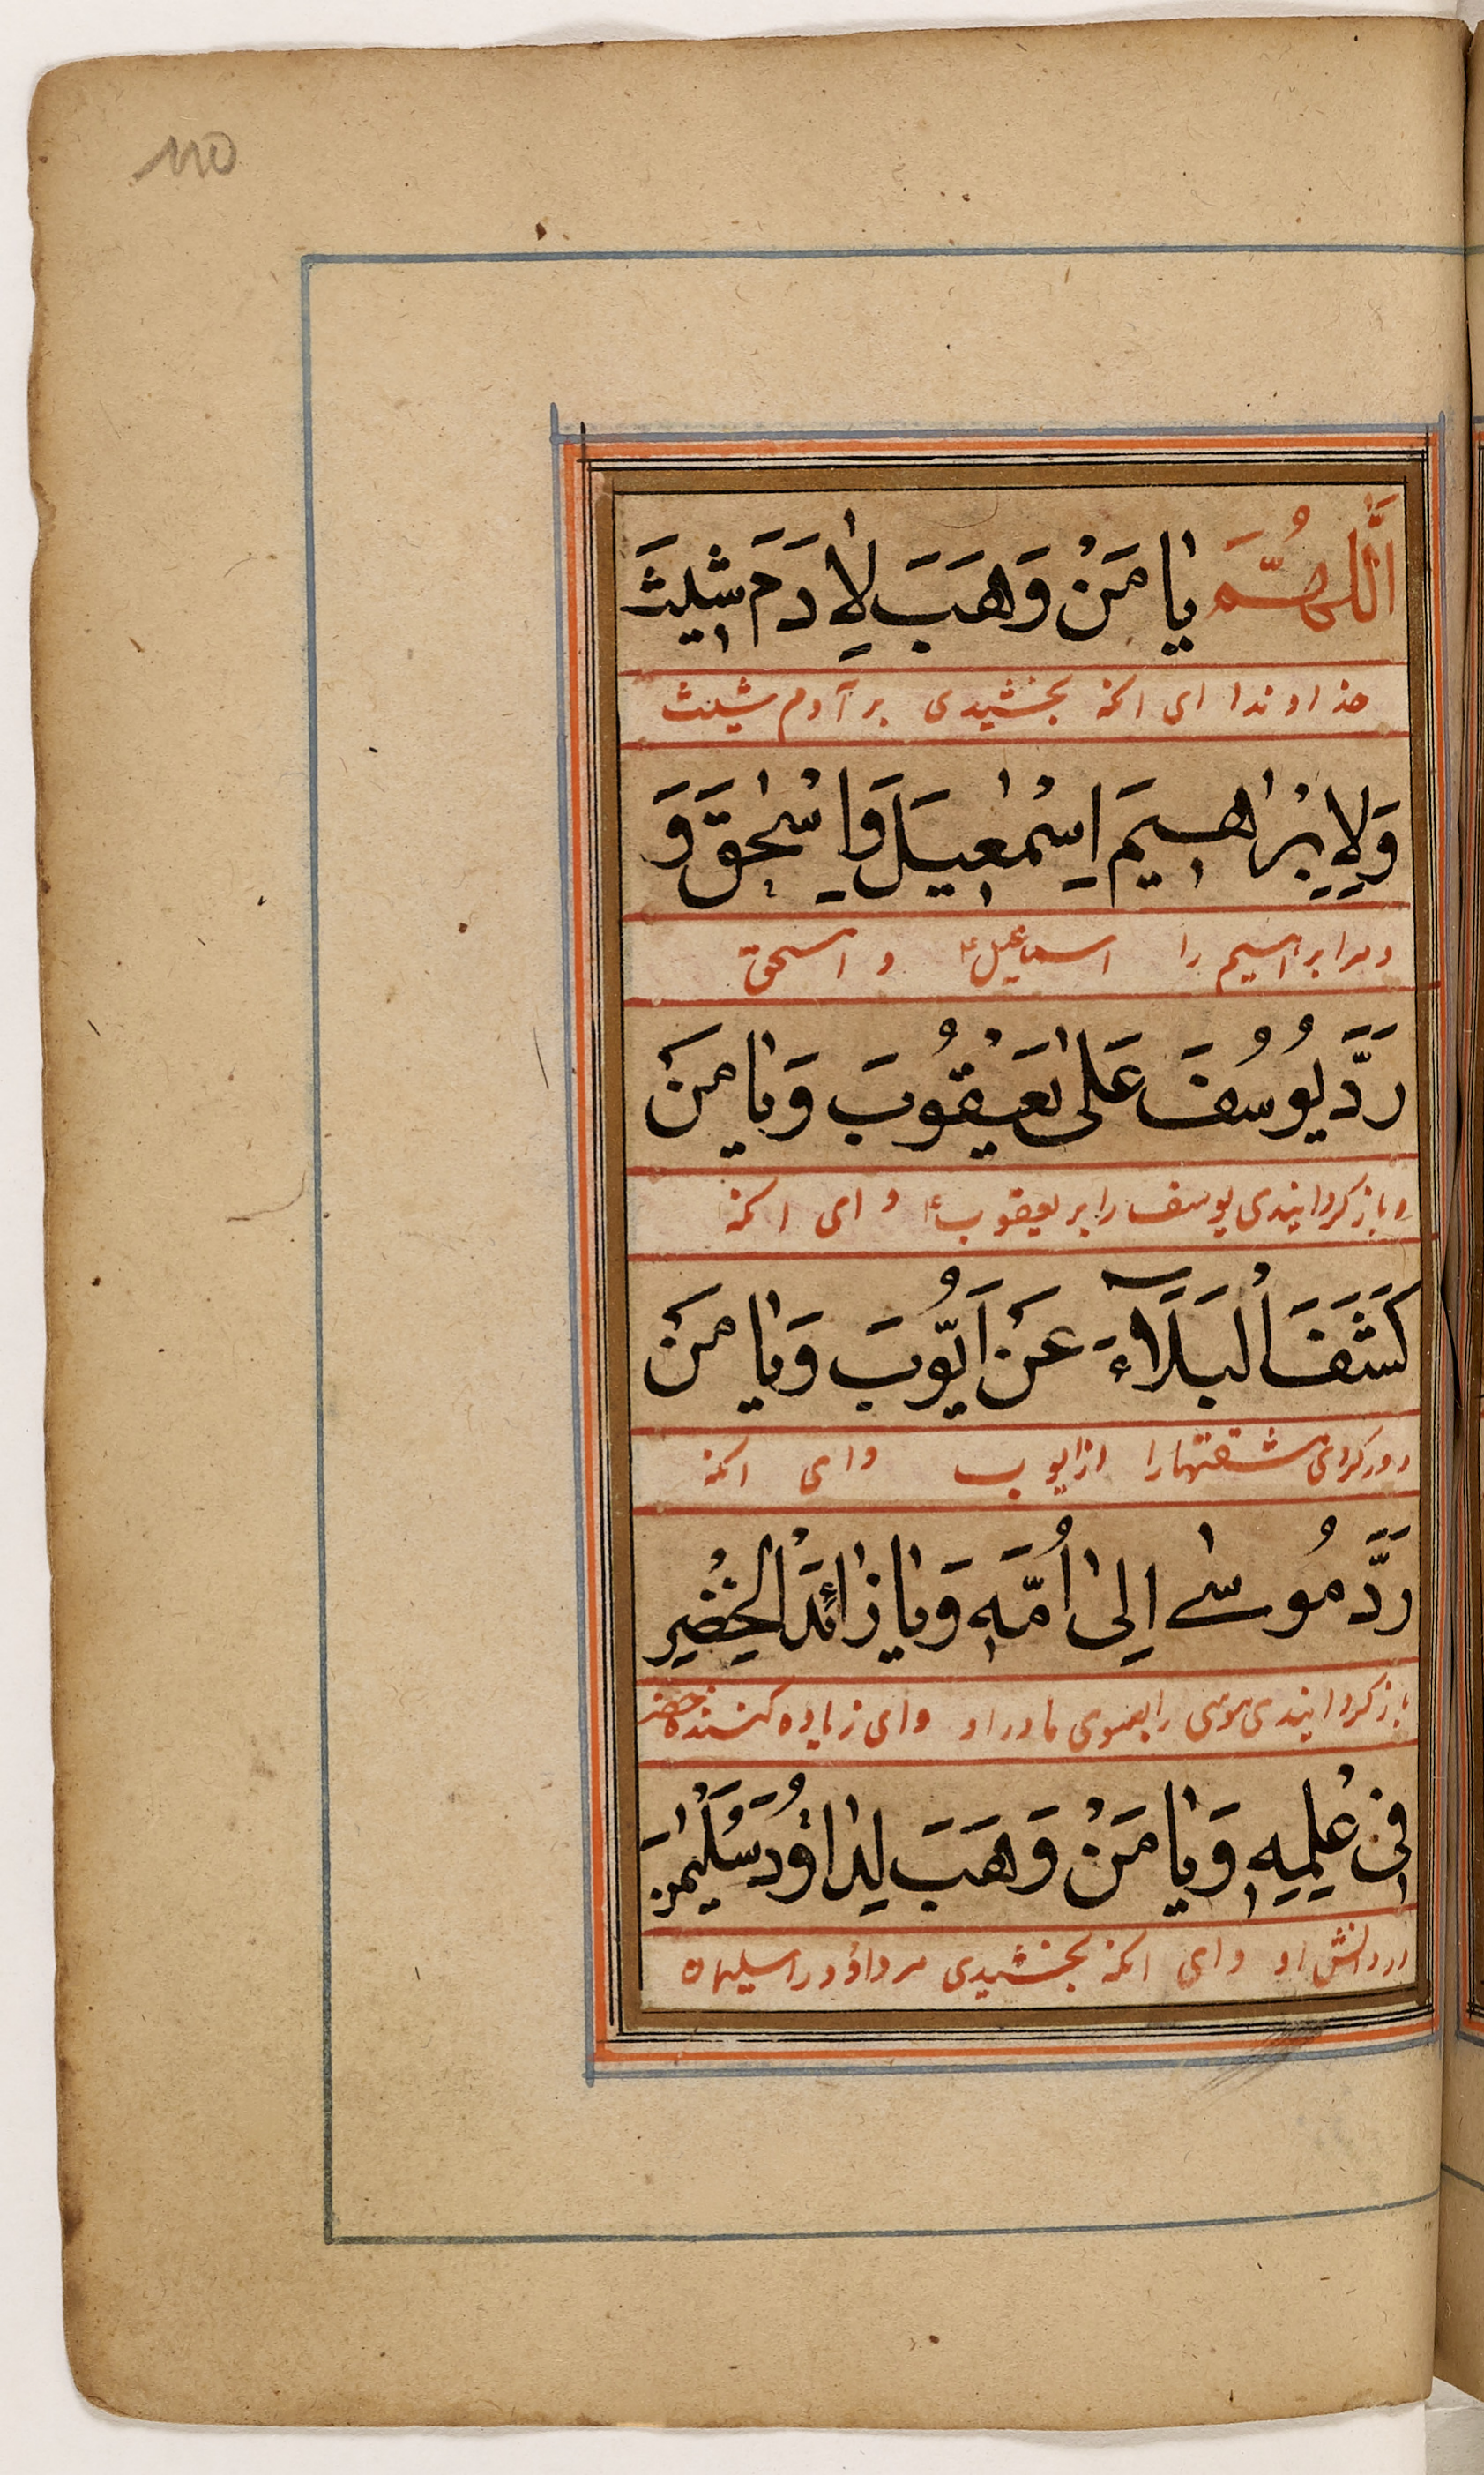 ١١٥
اَللّٰهُمَّ يٰا مَنْ وَهَبَ لِاٰدَمَ شيٖثَ
خداوندا ای انکه بخشیدی بر آدم شیث
وَلِاِبْرٰاهيٖمَ اِسْمٰعيٖلَ وَاِسْحٰقَ وَ
و مر ابراهیم را اسماعیل ع و اسحق
رَدَّ يُوسُفَ عَلىٰ يَعْقُوبَ وَيٰا مَنْ
و باز کردانیدی یوسف را بر یعقوب ع و ای انکه
كَشَفَ اْلبَلَآءَ عَنْ اَيُّوبَ وَيٰا مَنْ
دور کردی مشقتها را از ایوب و ای انکه
رَدَّ مُوسٰى اِلىٰ اُمِّهٖ وَيٰا زٰائِدَ الْخِضْرِ
باز کردانیدی موسی را بسوی مادر او و ای زیاده کننده خضر
فىٖ عِلْمِهٖ وَيٰا مَنْ وَهَبَ لِدٰاوُدَ سُلَيْمٰنَ
در دانش او و ای انکه بخشیدی مر داؤد را سلیمان